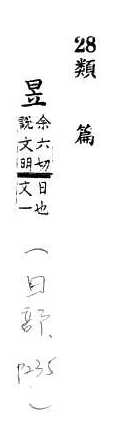 28類篇
昱余六切日也
説文明文一
(日部、P235)